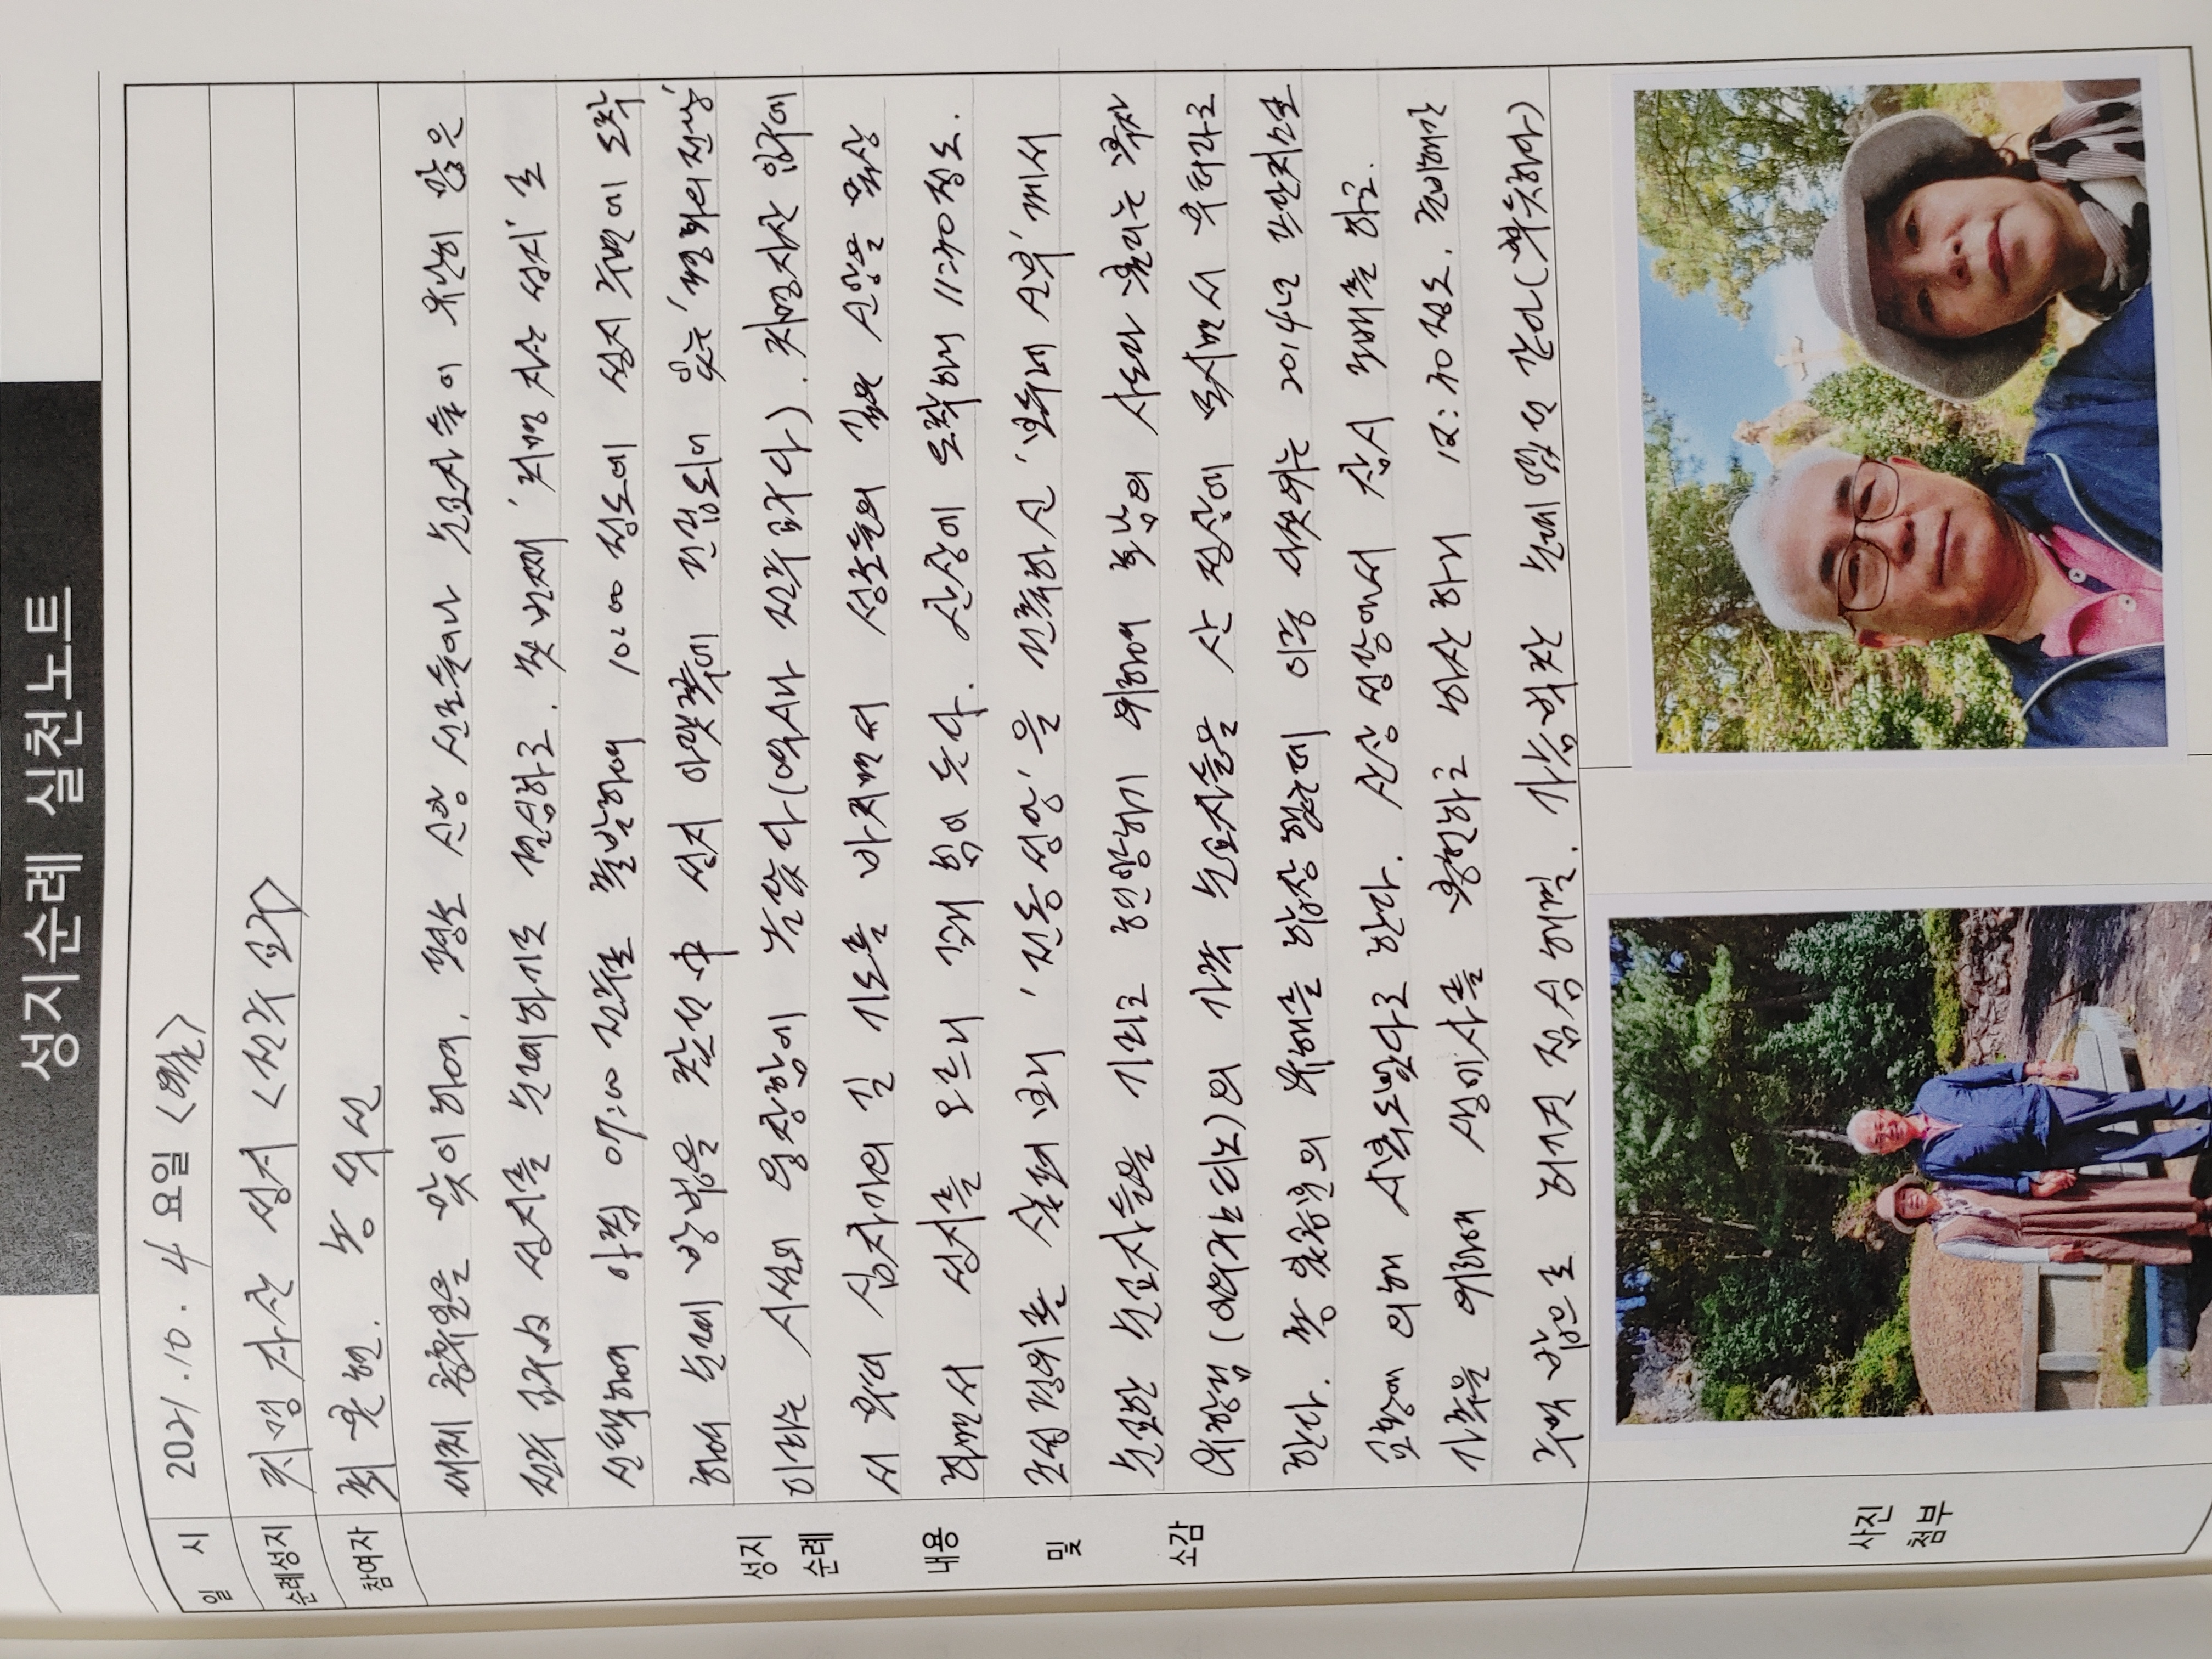 성지순례 실천노트
일 시 2021.10.4 요일 <월>
순례성지 치명자산 성지 <전주교구>
참여자 최운현. 농석선
대체 공휴일을 맞이하여, 평소 신앙 선조들이나 순교자들이 유난히 많은
전주교구內 성지를 순례하기로 결심하고, 첫번째 '치명자산 성지'로
선택하여 아침 07:00 전주로 출발하여 10:00 정도에 성지 주변에 도착
하여 순례 방법을 찾던 中 성지 아랫쪽에 건립되어 있는 '평화의전당'
이라는 시설의 웅장함에 놀랐다(역시나 전주교구다). 치명자산 입구에
서 부터 십자가의 길 기도를 바치면서 성조들의 깊은 신앙을 묵상
하면서 성지를 오르니 꽤 힘이 든다. 산상에 도착하니 11:30정도.
조성경위를 살펴보니 '전동성당'을 건축하신 '보두네 신부'께서
순교한 순교자들을 기리고 현양하기 위하여 호남의 사도라 불리는 복자
유항검(아우구스티노)의 가족 순교자들을 산 정상에 모시면서 부터라고
한다. 총 일곱분의 유해를 합장했는데 이중 다섯위는 2014년 프란치스코
교황에 의해 시복되었다고 한다. 산상성당에서 잠시 조배를 하고.
가족을 위하여 생미사를 봉헌하고 하산하니 12:30정도. 준비해간
주먹밥으로 허기진 점심해결. 가슴벅찬 순례였던 같아(뿌듯하다)
성지
순례
내용
및
소감
사진
첨부